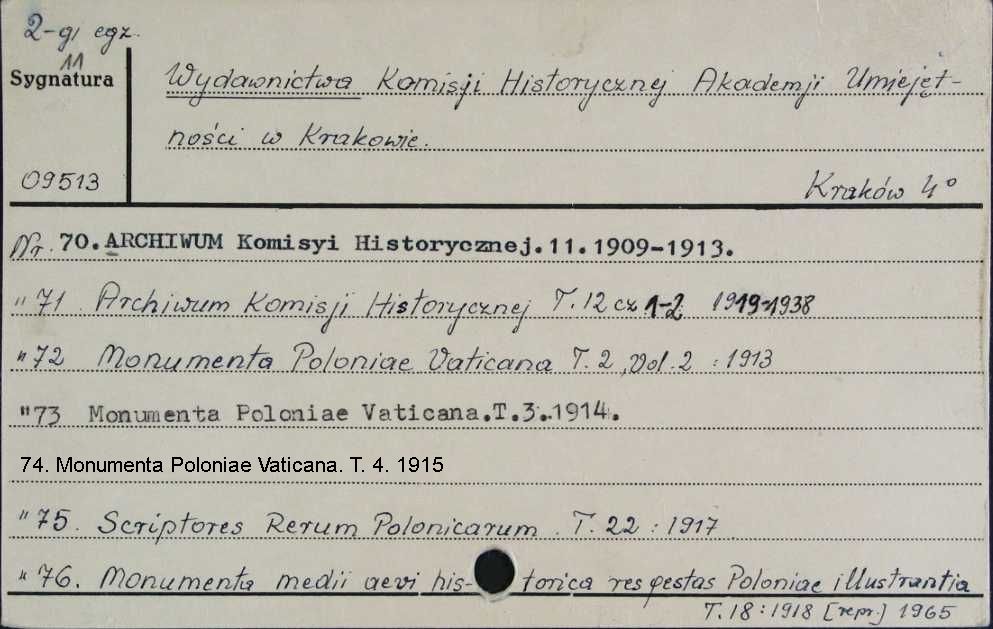 2-gi egz.
11
Sygnatura
Wydawnictwa Komisji Historycznej Akademji Umiejęt-
ności w Krakowie.
09513
Kraków 4°
Nr. 70. ARCHIWUM Komisyi Historycznej.11.1909-1913.
" 71 Archiwum Komisji Historycznej T. 12 cz 1-2 1919-1938
" 72 Monumenta Poloniae Vaticana T. 2, Vol. 2 : 1913
" 73 Monumenta Poloniae Vaticana.T.3.1914.
74. Monumenta Poloniae Vaticana. T. 4. 1915
" 75. Scriptores Rerum Polonicarum. T. 22 : 1917
" 76. Monumenta medii aevi his- torica res gestas Poloniae illustrantia
T. 18 : 1918 [repr.] 1965